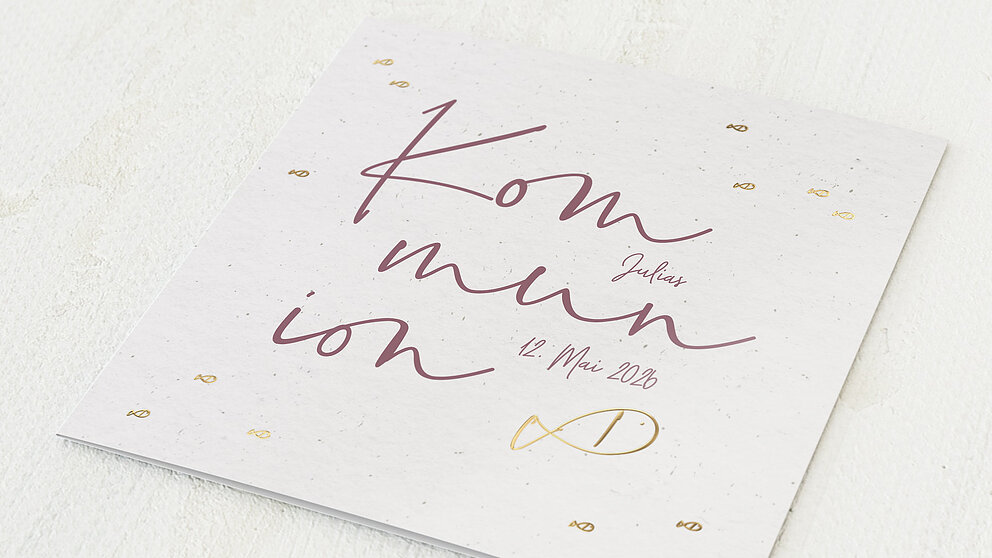 Kom
Julias
mun
ion
12. Mai 2026